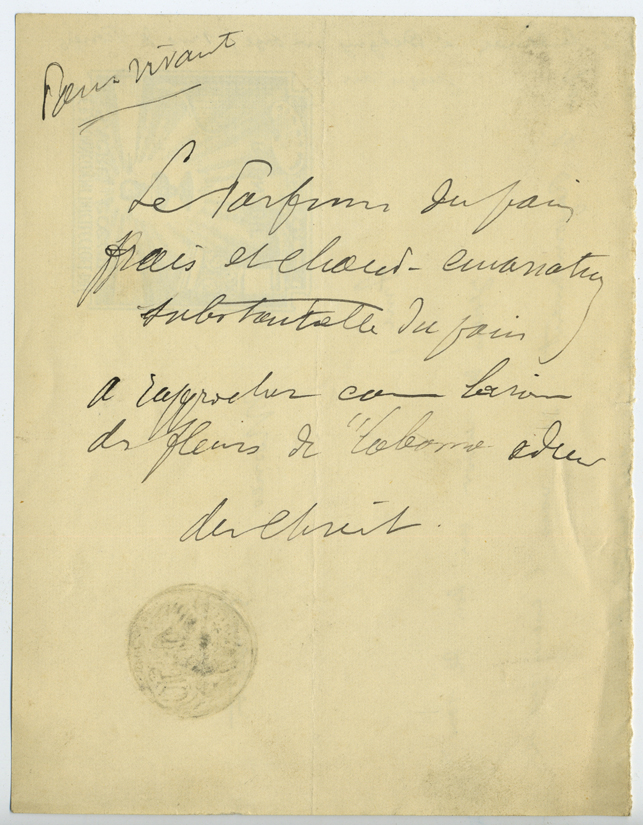 Pain vivant
Le Parfum du pain
frais et chaud - emanation
substantielle du pain
a rapprocher com
des fleurs de odeur
du Christ.